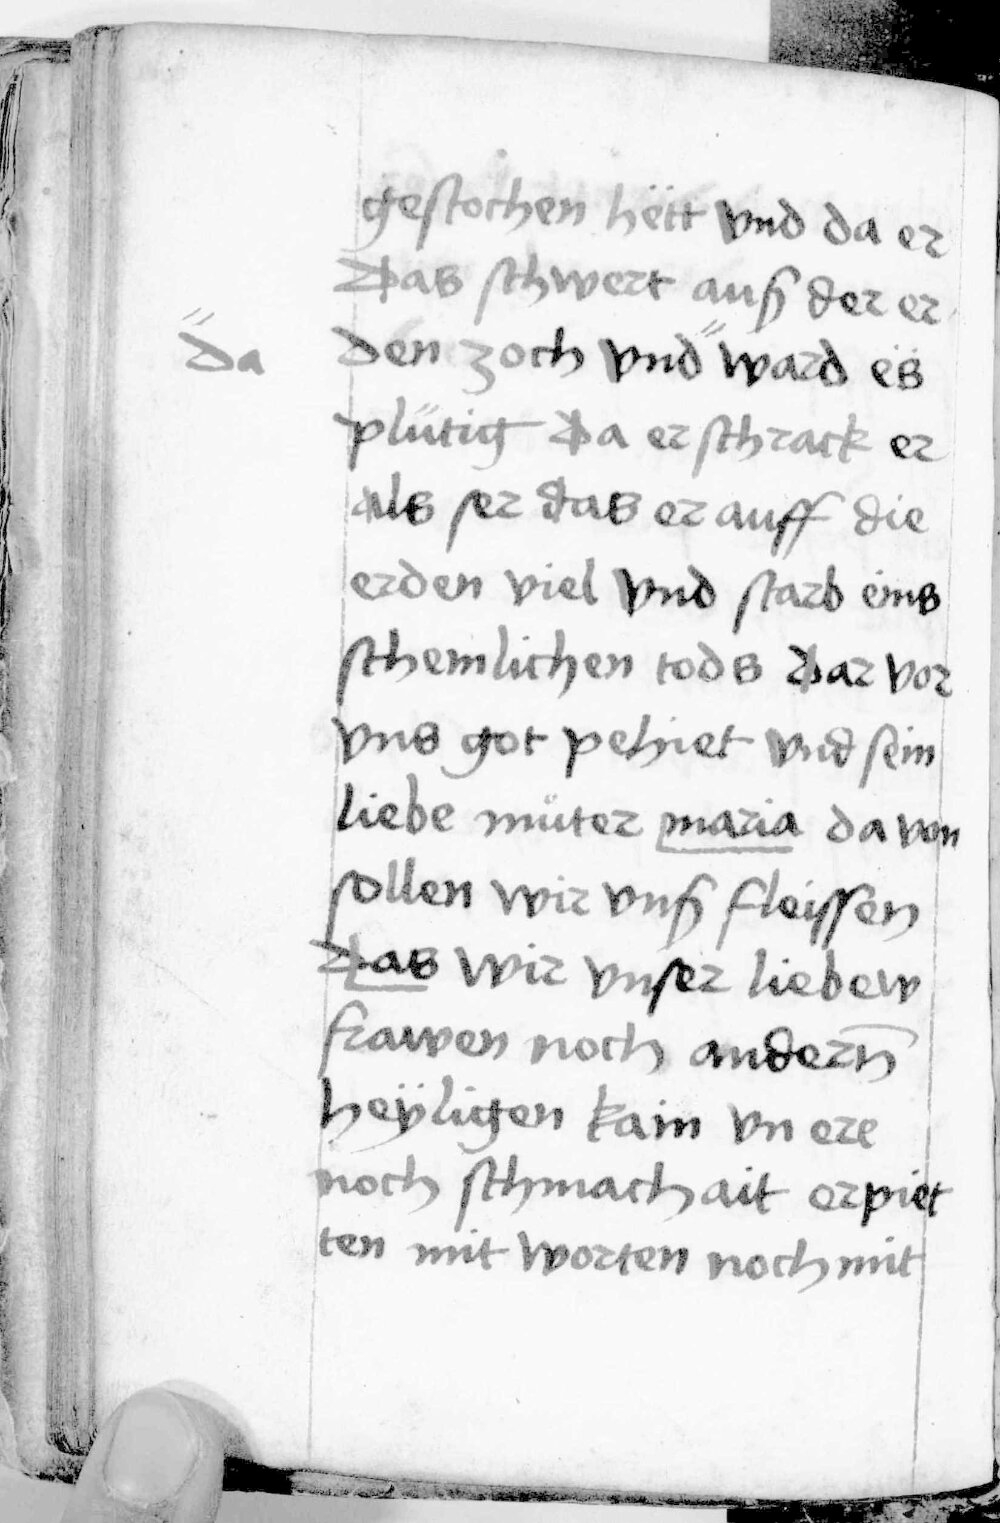 gestochen hëtt vnd da er
Das schwert auß der er
da
den zoch vnd " ward eß
plütig Da er schrack er
als ser das er auff die
erden viel vnd starb eins
schemlichen tods Dar vor
vns got pehiet vnd sein
liebe muͦter maria da von
sollen wir vnß fleissen
Das wir vnser liebew
frawen noch andern̄
heÿligen kain vn ere
noch schmachait erpiet
ten mit worten noch mit